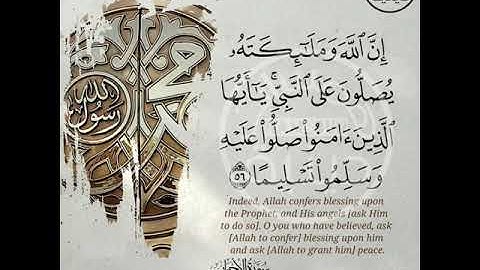 إِنَّ ٱللَّهَ وَمَلَٰٓئِكَتَهُۥ
يُصَلُّونَ عَلَى ٱلنَّبِىِّ ۚ يَٰٓأَيُّهَا
ٱلَّذِينَ ءَامَنُوا۟ صَلُّوا۟ عَلَيْهِ
وَسَلِّمُوا۟ تَسْلِيمًا ٥٦
Indeed, Allah confers blessing upon
the Prophet, and His angels [ask Him
to do so]. O you who have believed, ask
[Allah to confer] blessing upon him
and ask [Allah to grant him] peace.
سورة الأحزاب
محمد
رسول الله